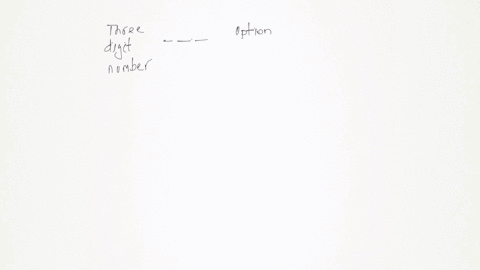 Three
digit
number
_ _ _
option